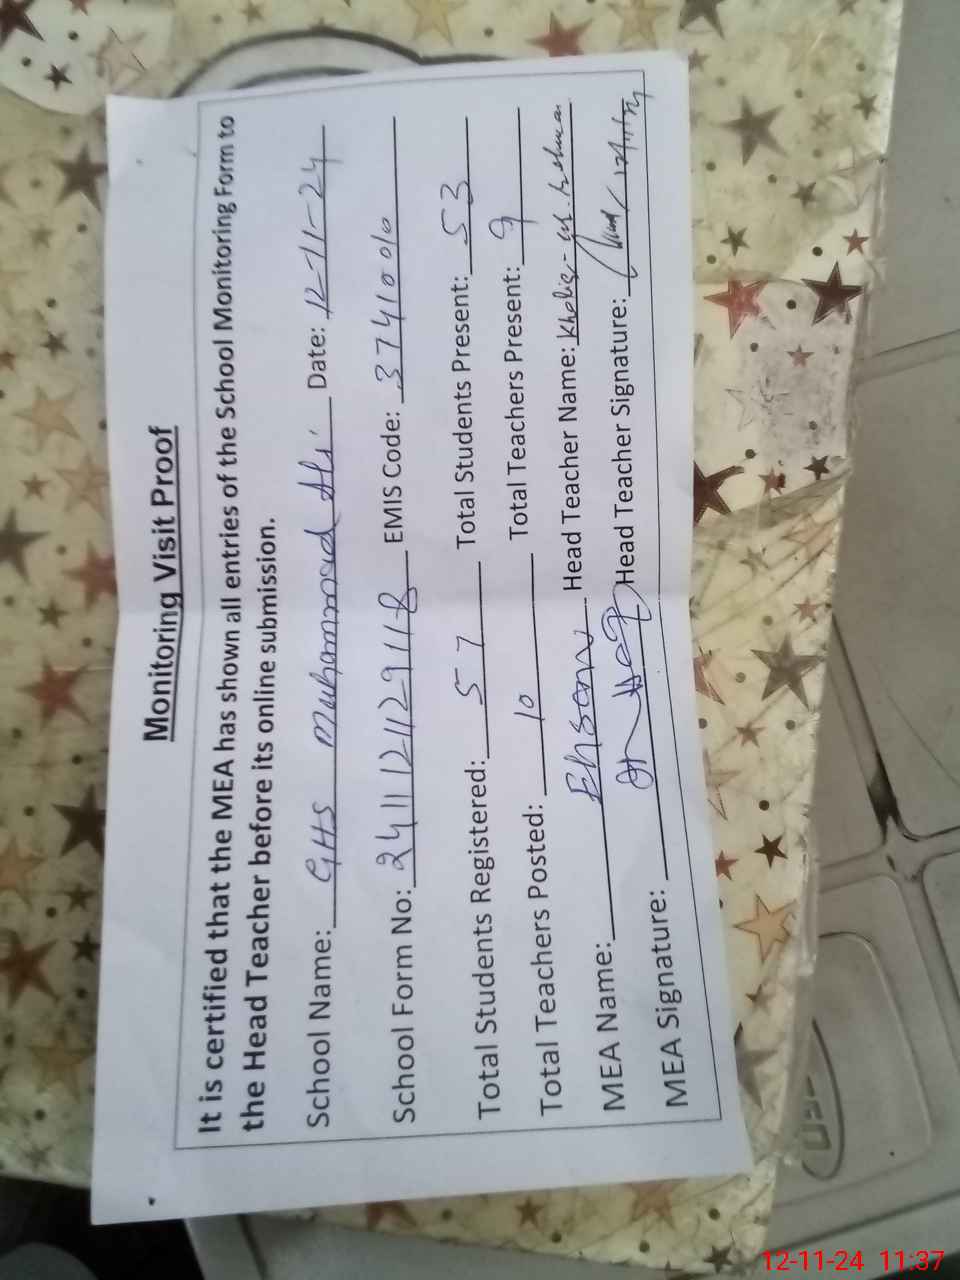 Monitoring Visit Proof
It is certified that the MEA has shown all entries of the School Monitoring Form to
the Head Teacher before its online submission.
School Name: GHS Muhammad Ali Date: 12-11-24
School Form No: EMIS Code: 37410010
Total Students Registered: 57 Total Students Present: 53
Total Teachers Posted: 10 Total Teachers Present: 9
MEA Name: Ehsan Head Teacher Name: Khaliq-ur-Rehman
MEA Signature: Head Teacher Signature: 12/11/24
12-11-24 11:37